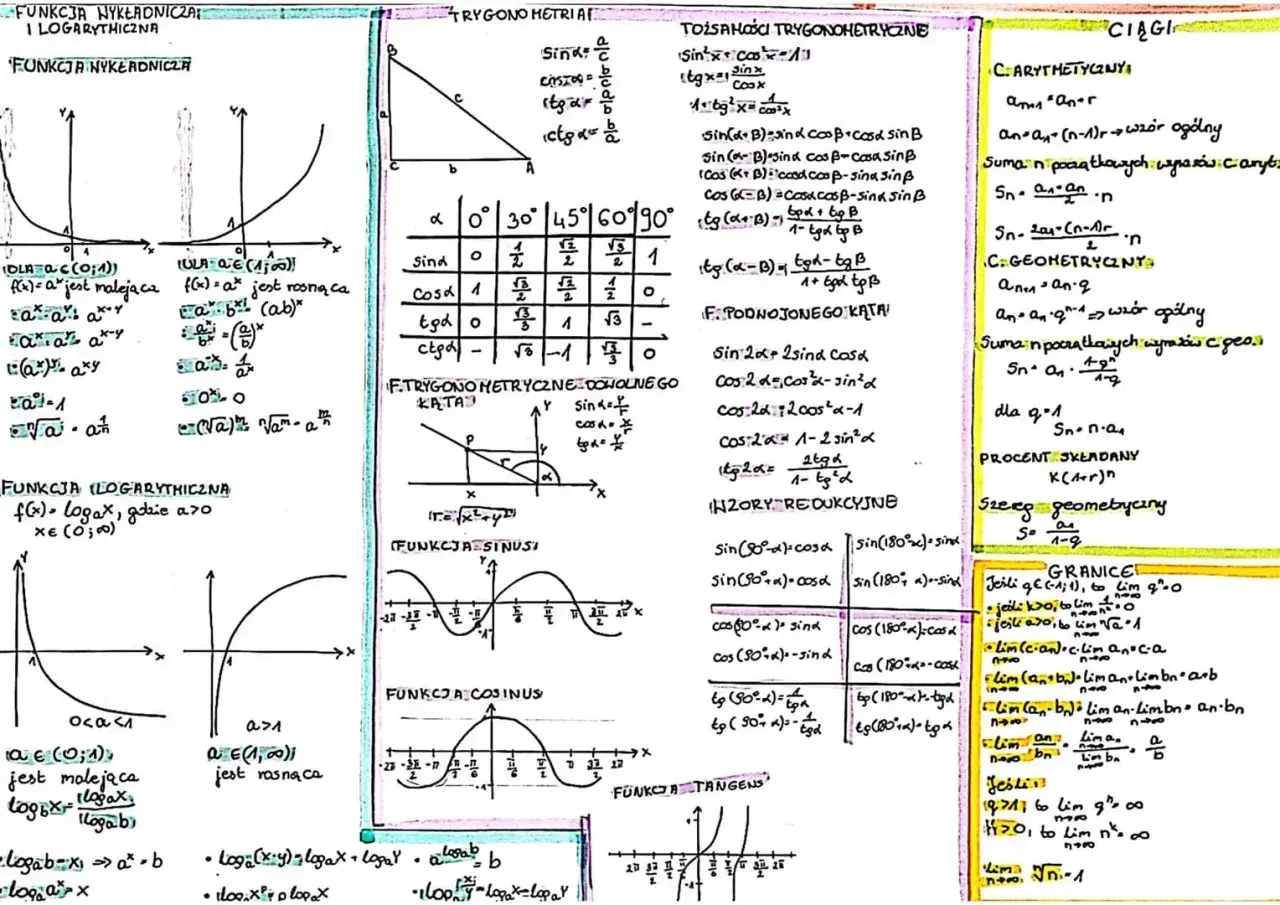 FUNKCJA WYKŁADNICZA
I LOGARYTMICZNA
FUNKCJA WYKŁADNICZA
Y
1
0 1 x
Y
1
0 1 x
DLA a∈(0;1)
f(x)=aˣ jest malejąca
DLA a∈(1;∞)
f(x)=aˣ jest rosnąca
(aˣ)ʸ= aˣʸ
a⁰=1
ⁿ√a = a^(1/n)
aˣ·bˣ=(ab)ˣ
aˣ/bˣ=(a/b)ˣ
a⁻ˣ=1/aˣ
0ˣ=0
(ⁿ√a)ᵐ=ⁿ√aᵐ=a^(m/n)
FUNKCJA LOGARYTMICZNA
f(x)=logₐx, gdzie a>0
x∈(0;∞)
Y
1 x
0<a<1
1 x
a>1
a∈(0;1)
jest malejąca
a∈(1,∞)
jest rosnąca
log_b x = logₐx/logₐb
logₐb=x ⇒ aˣ=b
logₐaˣ=x
logₐ(x·y)=logₐx+logₐy
logₐxᵖ=p logₐx
a^(logₐb)=b
logₐ x/y=logₐx-logₐy
TRYGONOMETRIA
B
a c
C b A
sinα=a/c
cosα=b/c
tgα=a/b
ctgα=b/a
α 0° 30° 45° 60° 90°
sinα 0 1/2 √2/2 √3/2 1
cosα 1 √3/2 √2/2 1/2 0
tgα 0 √3/3 1 √3 -
ctgα - √3 -1 √3/3 0
F. TRYGONOMETRYCZNE DOWOLNEGO
KĄTA
P r Y y α x x
sinα=y/r
cosα=x/r
tgα=y/x
r=√x²+y²
FUNKCJA SINUS
Y
x
-1
FUNKCJA COSINUS
x
-1
FUNKCJA TANGENS
x
-1
TOŻSAMOŚCI TRYGONOMETRYCZNE
sin²x+cos²x=1
tgx=sinx/cosx
1+tg²x=1/cos²x
sin(α+β)=sinα cosβ+cosα sinβ
sin(α-β)=sinα cosβ-cosα sinβ
cos(α+β)=cosα cosβ-sinα sinβ
cos(α-β)=cosα cosβ-sinα sinβ
tg(α+β)=tgα+tgβ/1-tgα tgβ
tg(α-β)=tgα-tgβ/1+tgα tgβ
F. PODWOJONEGO KĄTA
sin2α=2sinα cosα
cos2α=cos²α-sin²α
cos2α=2cos²α-1
cos2α=1-2sin²α
tg2α=2tgα/1-tg²α
WZORY REDUKCYJNE
sin(90°-α)=cosα
sin(180°-α)=sinα
sin(90°+α)=cosα
sin(180°+α)=-sinα
cos(90°-α)=sinα
cos(180°-α)=cosα
cos(90°+α)=-sinα
cos(180°+α)=-cosα
tg(90°-α)=1/tgα
tg(180°-α)=-tgα
tg(90°+α)=-1/tgα
tg(180°+α)=tgα
CIĄGI
C. ARYTMETYCZNY
aₙ₊₁=aₙ+r
aₙ=a₁+(n-1)r → wzór ogólny
Suma n początkowych wyrazów c aryt.
Sₙ=a₁+aₙ/2·n
Sₙ=2a₁+(n-1)r/2·n
C. GEOMETRYCZNY
aₙ₊₁=aₙ·q
aₙ=a₁·qⁿ⁻¹ ⇒ wzór ogólny
Suma n początkowych wyrazów c geo.
Sₙ=a₁·1-qⁿ/1-q
dla q=1
Sₙ=n·a₁
PROCENT SKŁADANY
K(1+r)ⁿ
Szereg geometryczny
S=a₁/1-q
GRANICE
Jeśli q∈(-1;1), to lim n→∞ qⁿ=0
• jeśli k>0, to lim n→∞ 1/nᵏ=0
• jeśli a>0, to lim n→∞ ⁿ√a=1
• lim n→∞ (c·aₙ)=c·lim n→∞ aₙ=c·a
• lim n→∞ (aₙ+bₙ)=lim n→∞ aₙ+lim n→∞ bₙ=a+b
• lim n→∞ (aₙ·bₙ)=lim n→∞ aₙ·lim n→∞ bₙ=aₙ·bₙ
• lim n→∞ aₙ/bₙ=lim n→∞ aₙ/lim n→∞ bₙ=a/b
Jeśli:
q>1, to lim n→∞ qⁿ=∞
k>0, to lim n→∞ nᵏ=∞
lim n→∞ ⁿ√n=1